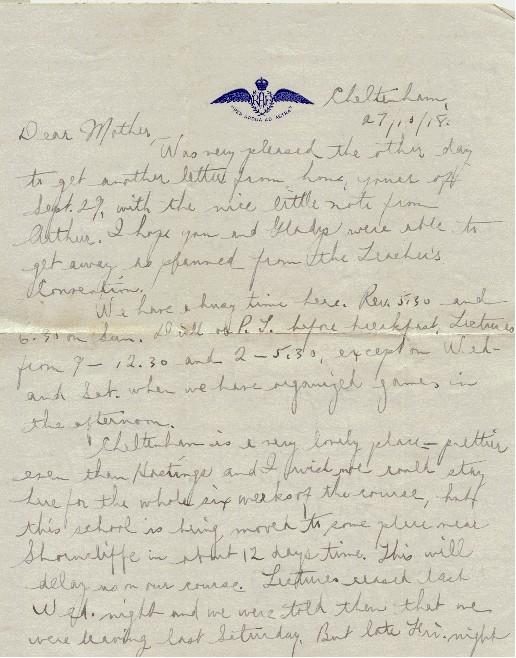 RAF
PER ARDUA AD ASTRA
Cheltenham,
27/10/18.
Dear Mother,
Was very pleased the other day
to get another letter from home, yours of
Sept. 29, with the nice little note from
Arthur. I hope you and Gladys were able to
get away as planned from the Teacher's
Convention.
We have a busy time here. Rev. 5.30 and
6.30 on Sun. Drill or P.T. before breakfast, Lectures
from 9-12.30 and 2-5.30, except on Wed-
and Sat. when we have organized games in
the afternoon.
Cheltenham is a very lovely place - prettier
even than Hastings and I wish we could stay
here for the whole six weeks of the course, but
this school is being moved to some place near
Shorncliffe in about 12 days time. This will
delay us on our course. Lectures ceased last
Wed. night and we were told then that we
were leaving last Saturday. But late Fri. night